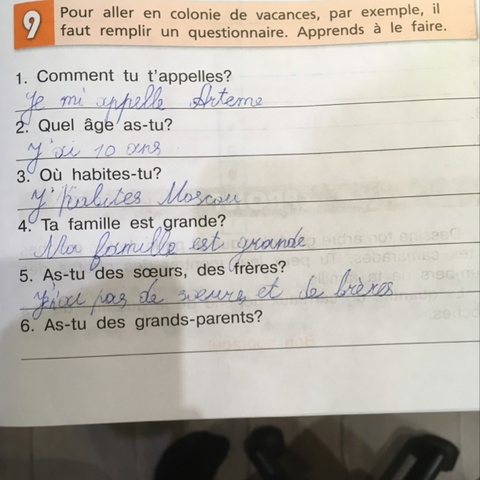 9 Pour aller en colonie de vacances, par exemple, il
faut remplir un questionnaire. Apprends à le faire.
1. Comment tu t'appelles?
Je mi appelle Arteme
2. Quel âge as-tu?
J'ai 10 ans
3. Où habites-tu?
J'habites Moscou
4. Ta famille est grande?
Ma famille est grande
5. As-tu des sœurs, des frères?
J'ai pas de sœurs et de brères
6. As-tu des grands-parents?